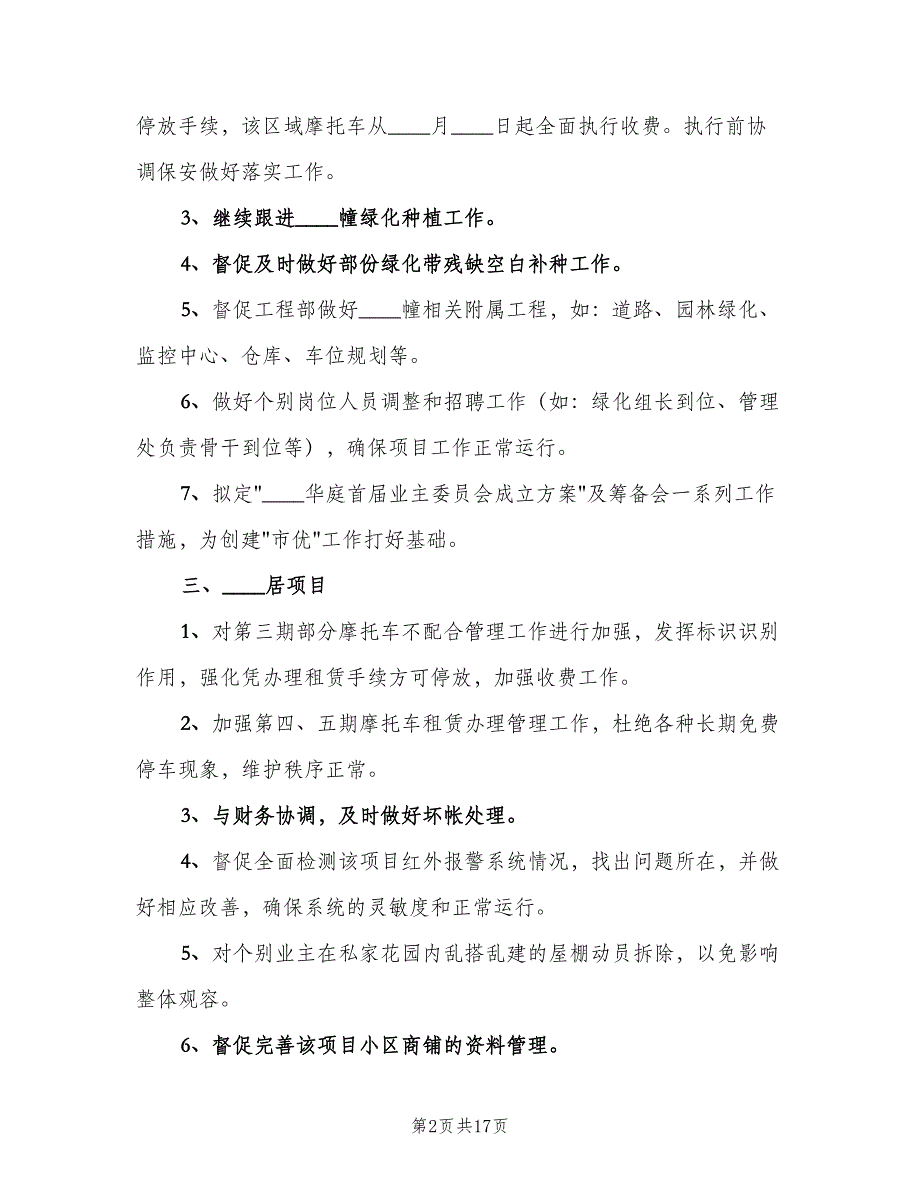 停放手续，该区域摩托车从____月____日起全面执行收费。执行前协
调保安做好落实工作。
3、继续跟进____幢绿化种植工作。
4、督促及时做好部份绿化带残缺空白补种工作。
5、督促工程部做好____幢相关附属工程，如：道路、园林绿化、
监控中心、仓库、车位规划等。
6、做好个别岗位人员调整和招聘工作（如：绿化组长到位、管理
处负责骨干到位等），确保项目工作正常运行。
7、拟定"____华庭首届业主委员会成立方案"及筹备会一系列工作
措施，为创建"市优"工作打好基础。
三、____居项目
1、对第三期部分摩托车不配合管理工作进行加强，发挥标识识别
作用，强化凭办理租赁手续方可停放，加强收费工作。
2、加强第四、五期摩托车租赁办理管理工作，杜绝各种长期免费
停车现象，维护秩序正常。
3、与财务协调，及时做好坏帐处理。
4、督促全面检测该项目红外报警系统情况，找出问题所在，并做
好相应改善，确保系统的灵敏度和正常运行。
5、对个别业主在私家花园内乱搭乱建的屋棚动员拆除，以免影响
整体观容。
6、督促完善该项目小区商铺的资料管理。
第2页共17页